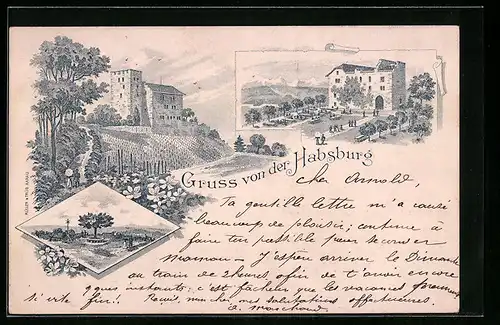 Gruss von der Habsburg
cher Arnold,
Ta gentille lettre m'a causé
beaucoup de plaisir; continue à
faire ton possible pour seconder
maman — J'espère arriver le Dimanche
au train de 2 heures afin de t'avoir encore
qques instants; c'est fâcheux que les vacances
si vite fini! Reçois, mon cher, mes salutations affectueuses.